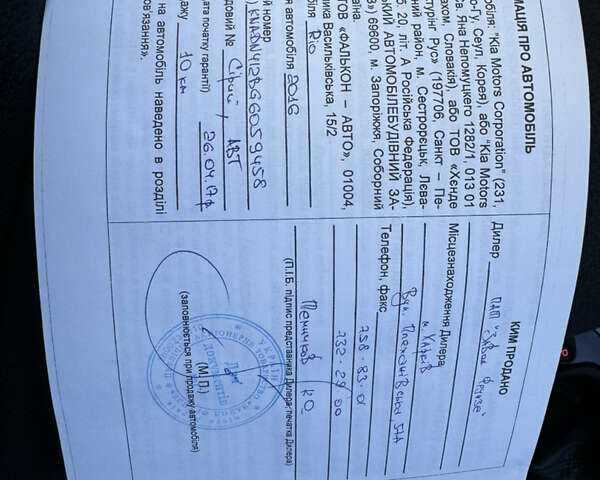 МАЦІЯ ПРО АВТОМОБІЛЬ
обіля: "Kia Motors Corporation" (231,
о-Гу, Сеул, Корея), або "Kia Motors
а. Яна Непомуцкего 1282/1, 013 01
ахом, Словакія), або ТОВ «Хенде
туринг Рус» (197706, Санкт – Пе-
ний район, м. Сестрорецьк, Лева-
б. 20, літ. А Російська Федерація),
ЬКИЙ АВТОМОБІЛЕБУДІВНИЙ ЗА-
З») 69600, м. Запоріжжя, Соборний
аїна.
ТОВ «ФАЛЬКОН – АВТО», 01004,
лика Васильківська, 15/2
біля Rio
я автомобіля 2016
й номер
) KNABN412BGG059458
довий № Сірий, АВТ
дата початку гарантії) 26.04.17р
дажу) 10 км
на автомобіль наведено в розділі
ов'язання».
КИМ ПРОДАНО
Дилер
Місцезнаходження Дилера
м. Харків
54А
Телефон, факс
758-83-01
732-29-00
(П.І.Б. підпис представника Дилера, печатка Дилера)
(М.П.)
(заповнюється при продажу автомобіля)